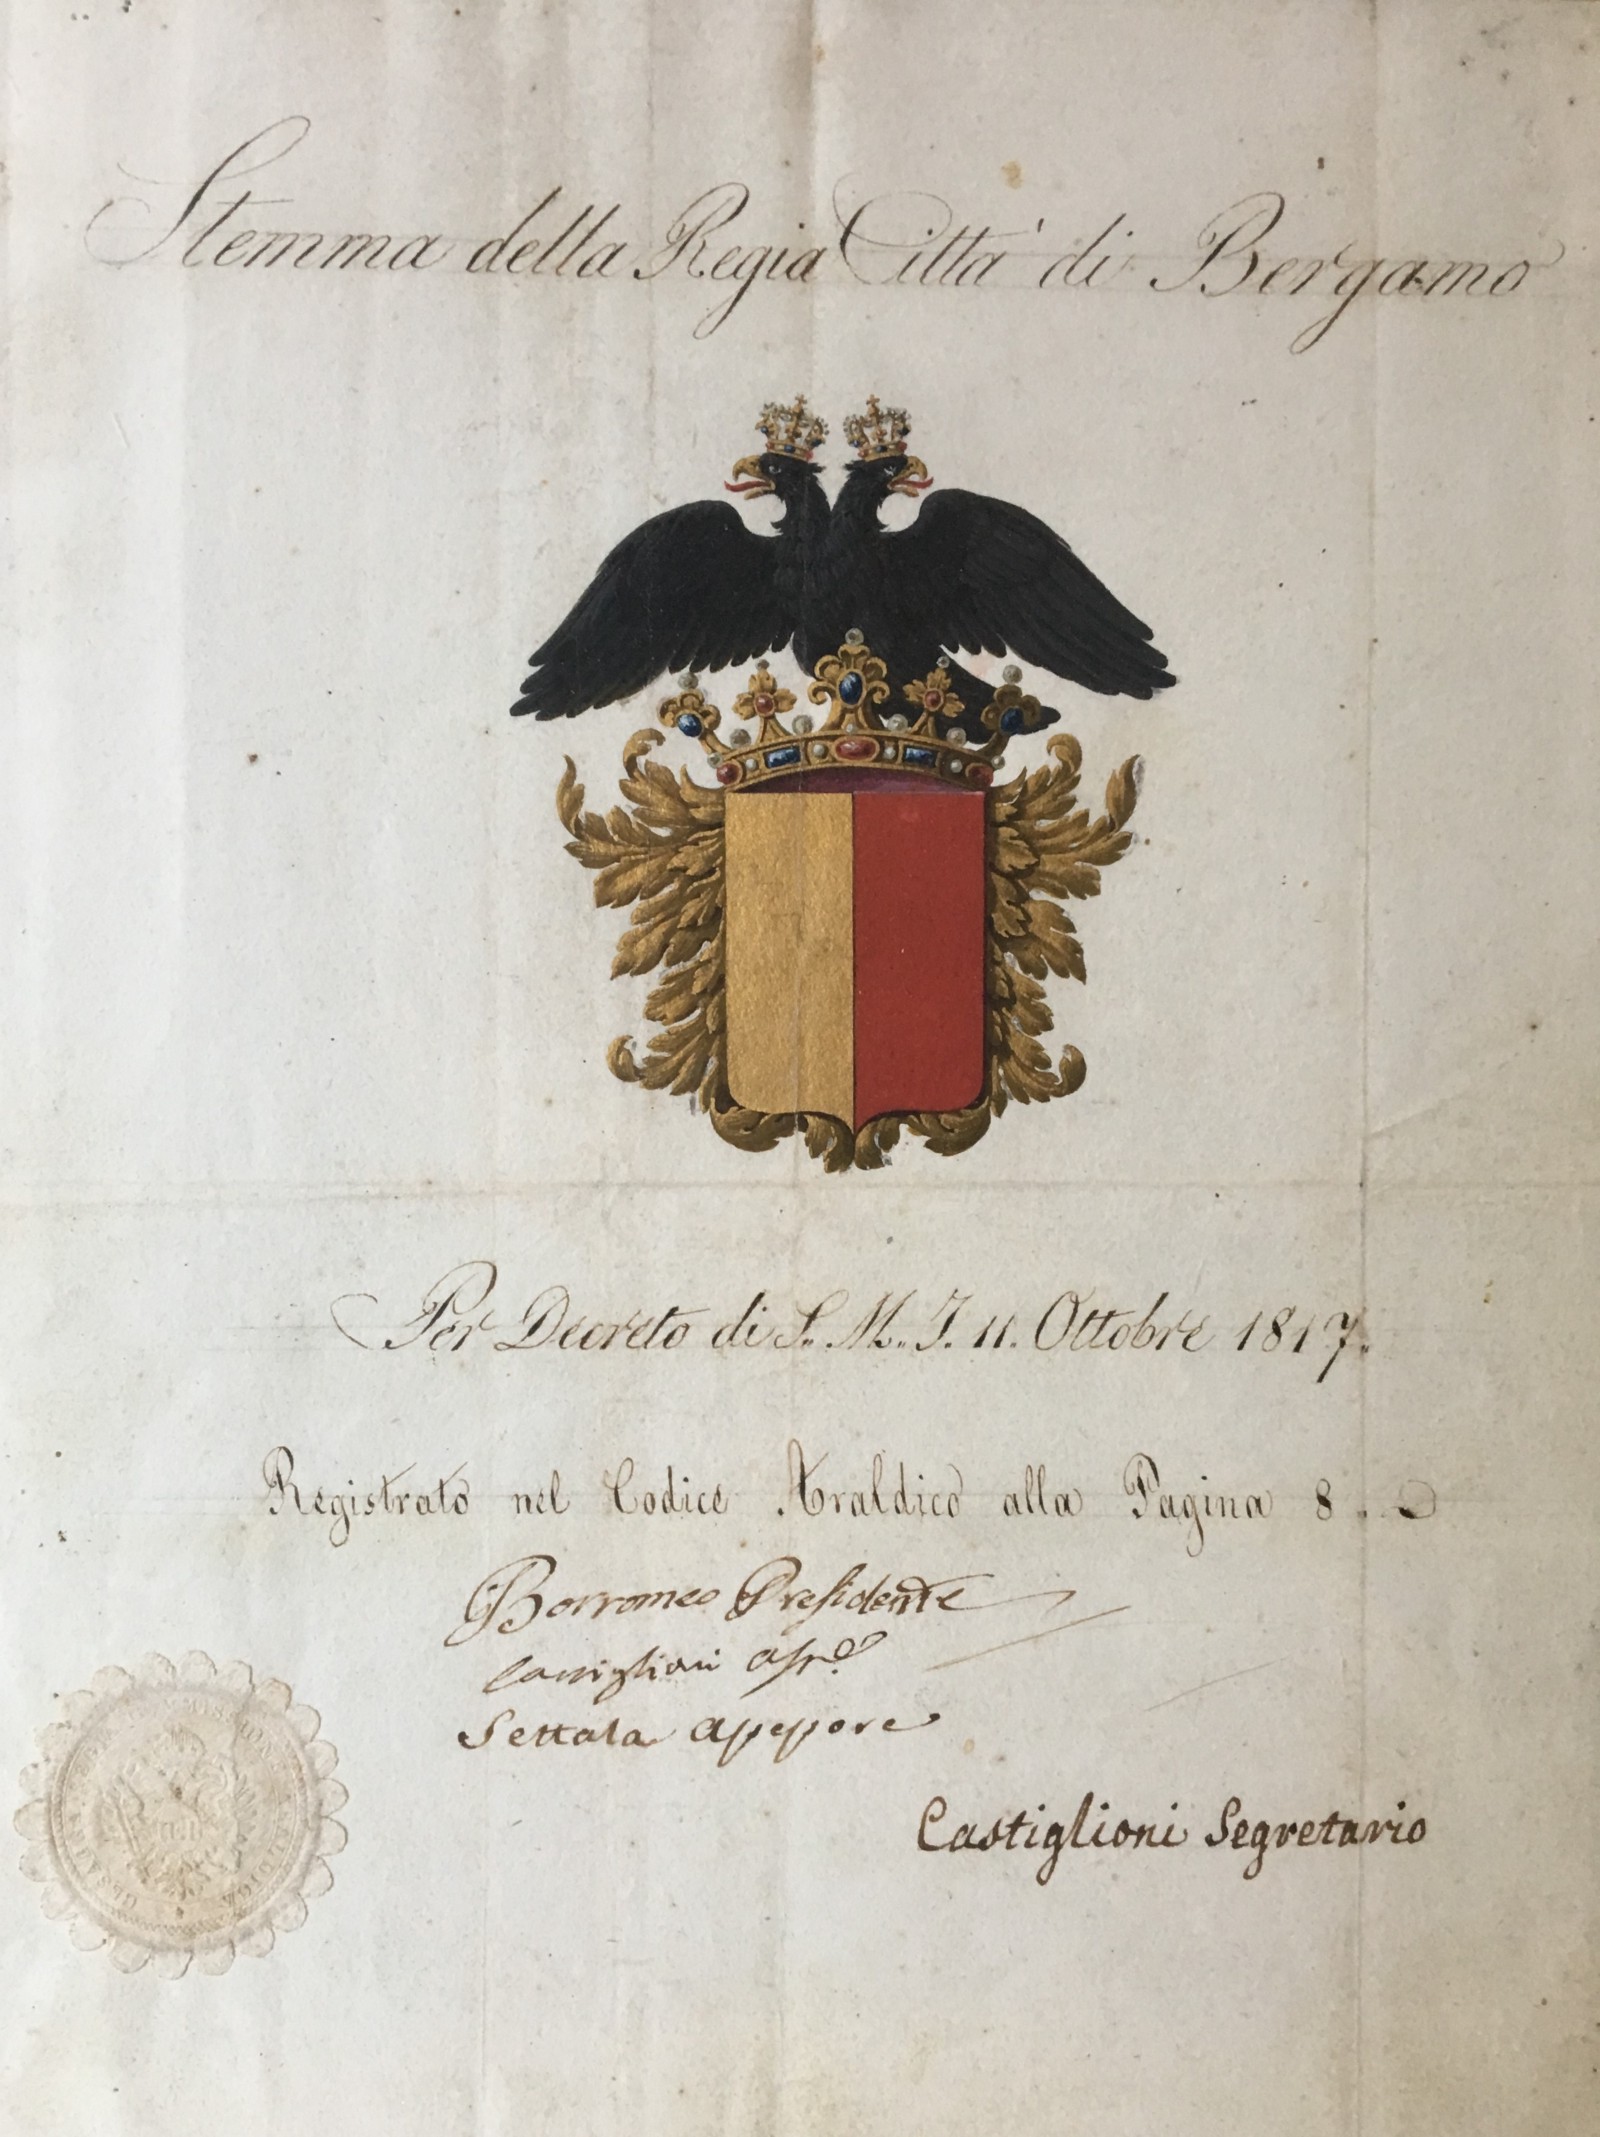 Stemma della Regia Città di Bergamo
Per Decreto di S. M. I. 11. Ottobre 1817.
Registrato nel Codice Araldico alla Pagina 8.
Borromeo Presidente
Castiglioni
Settala
Castiglioni Segretario